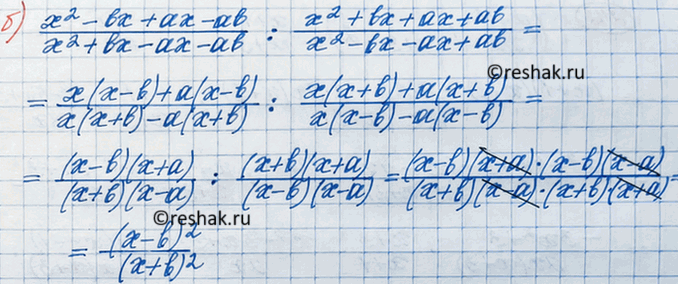 б) (x² - bx + ax - ab)/(x² + bx - ax - ab) : (x² + bx + ax + ab)/(x² - bx - ax + ab) =
©reshak.ru
= (x(x-b)+a(x-b))/(x(x+b)-a(x+b)) : (x(x+b)+a(x+b))/(x(x-b)-a(x-b)) =
= ((x-b)(x+a))/((x+b)(x-a)) : ((x+b)(x+a))/((x-b)(x-a)) = ((x-b)(x+a)·(x-b)(x-a))/((x+b)(x-a)·(x+b)·(x+a)) =
©reshak.ru
= (x-b)²/(x+b)²